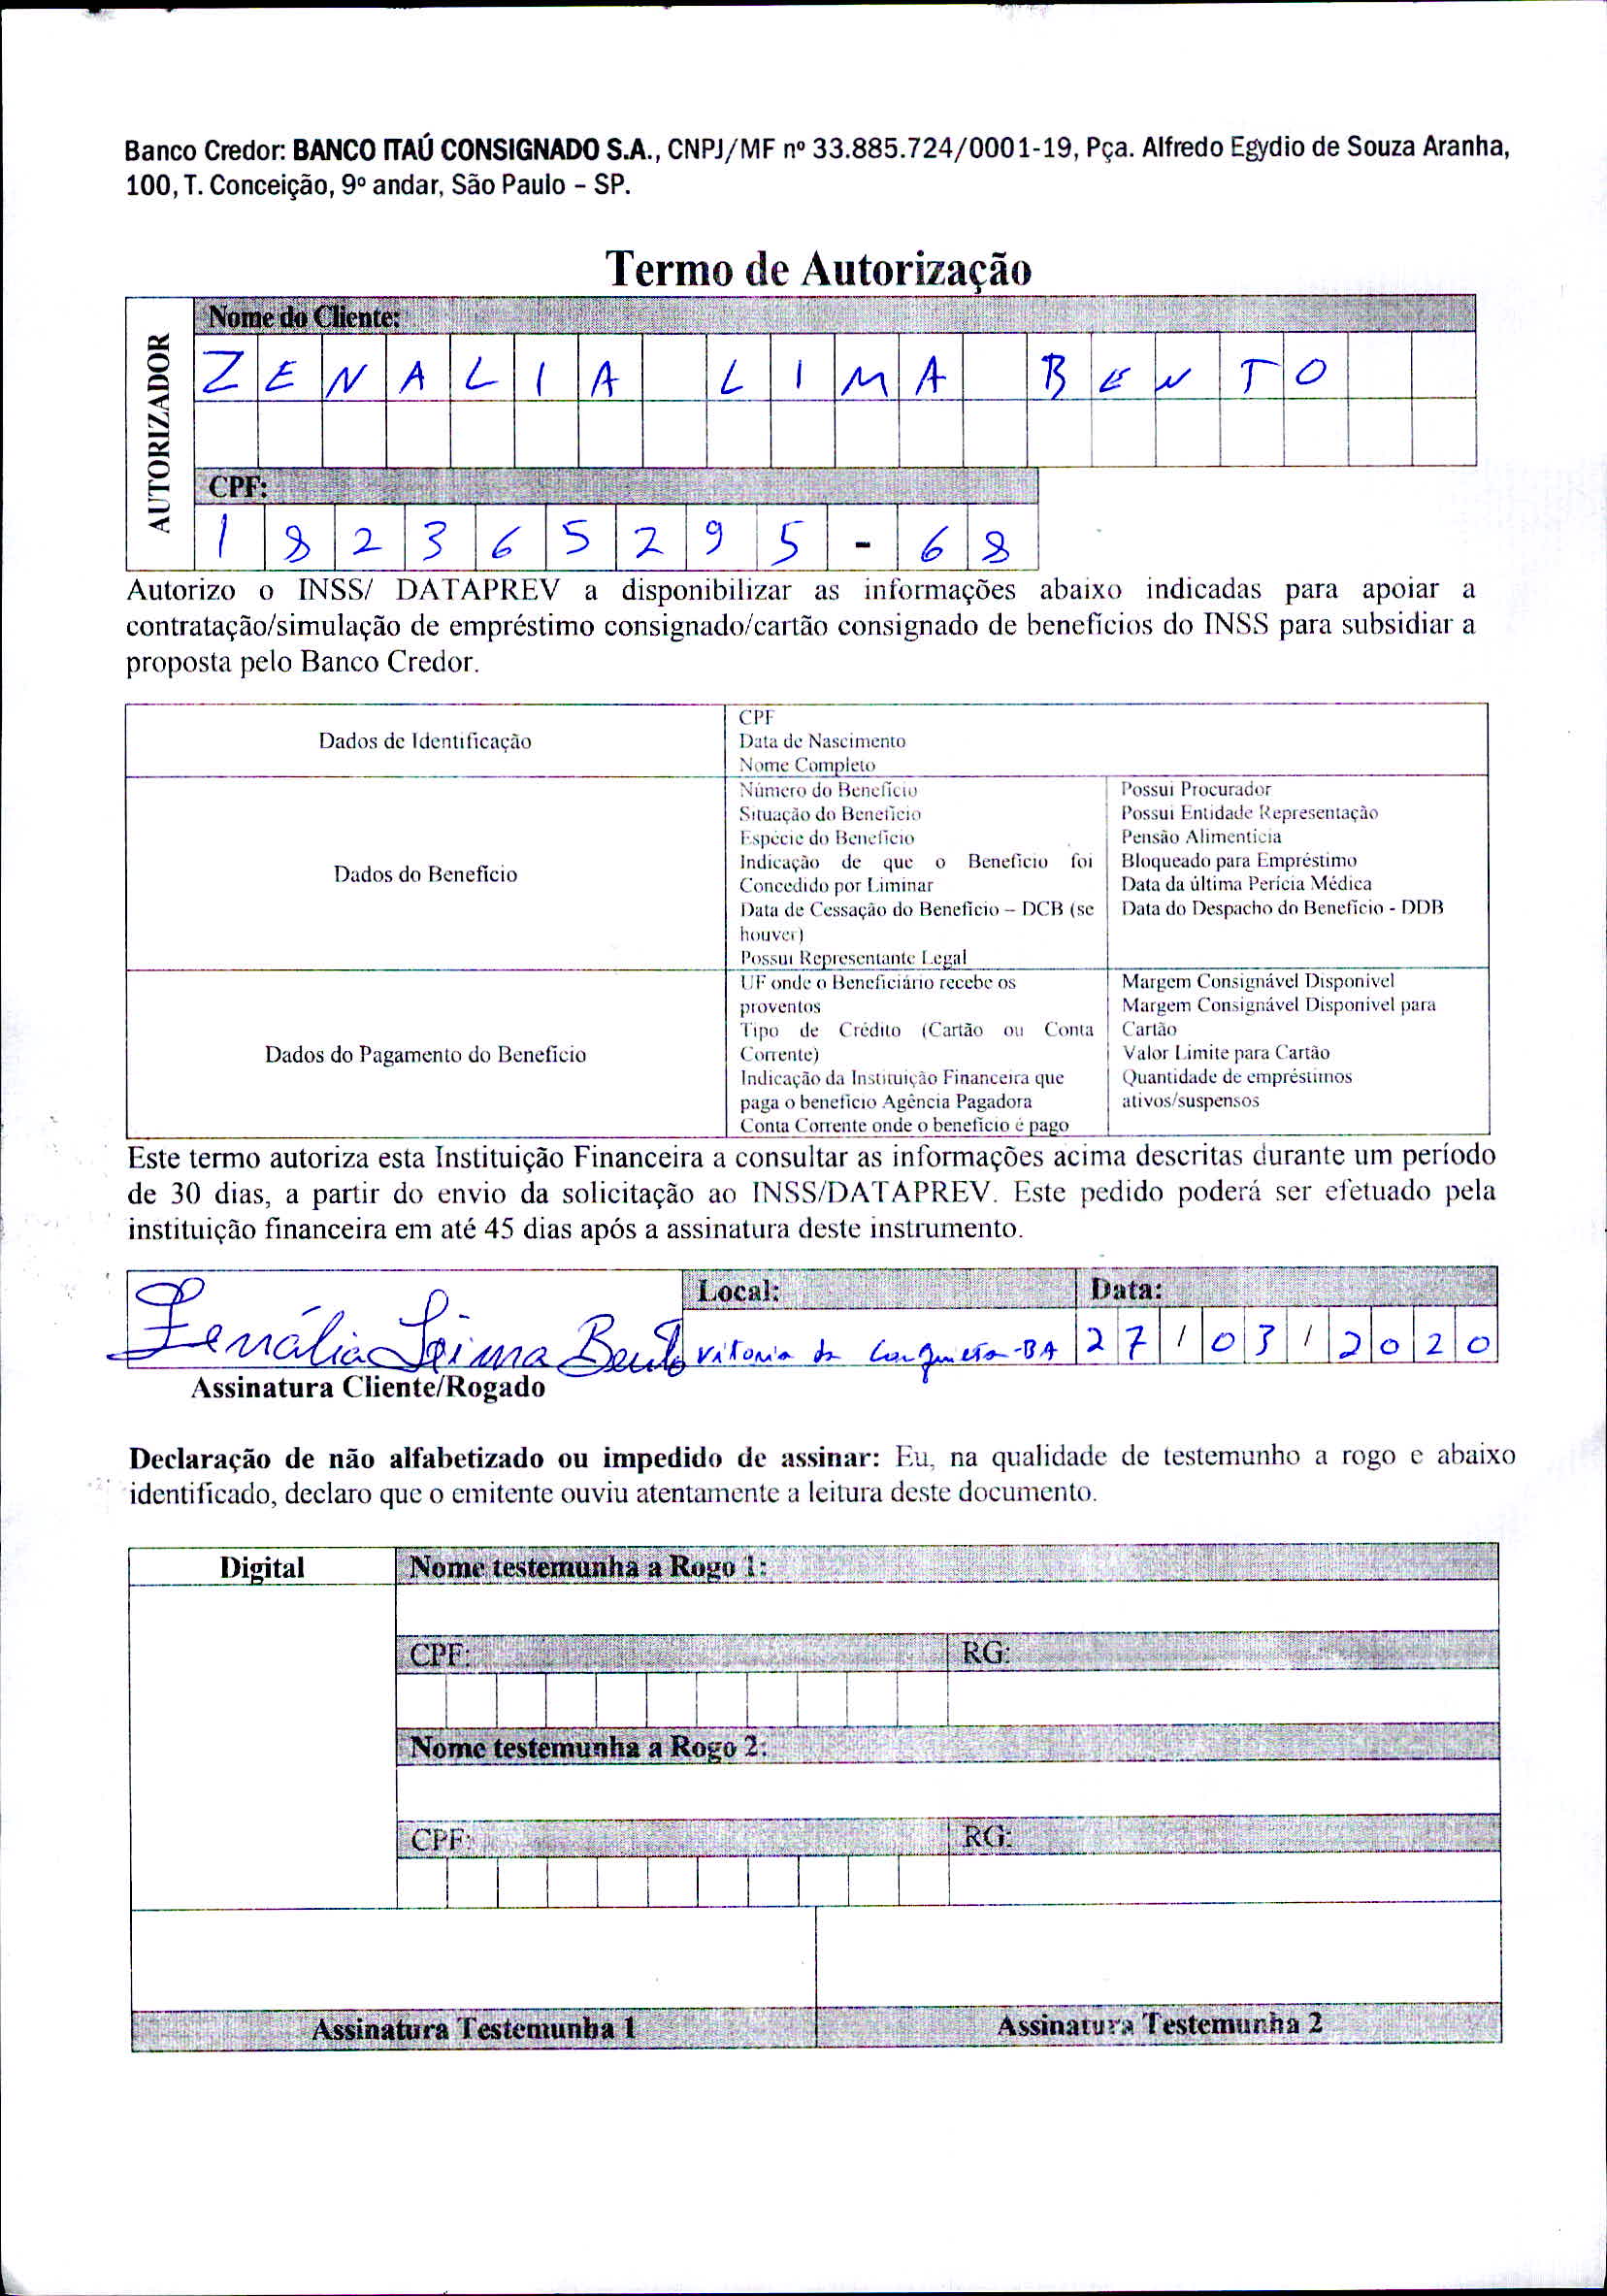 Banco Credor: BANCO ITAÚ CONSIGNADO S.A., CNPJ/MF nº 33.885.724/0001-19, Pça. Alfredo Egydio de Souza Aranha,
100, T. Conceição, 9º andar, São Paulo – SP.
Termo de Autorização
AUTORIZADOR
Nome do Cliente:
ZENALIA LIMA BENTO
CPF:
182365295-68
Autorizo o INSS/ DATAPREV a disponibilizar as informações abaixo indicadas para apoiar a
contratação/simulação de empréstimo consignado/cartão consignado de benefícios do INSS para subsidiar a
proposta pelo Banco Credor.
Dados de Identificação
CPF
Data de Nascimento
Nome Completo
Dados do Benefício
Número do Benefício
Situação do Benefício
Espécie do Benefício
Indicação de que o Benefício foi
Concedido por Liminar
Data de Cessação do Benefício – DCB (se
houver)
Possui Representante Legal
Possui Procurador
Possui Entidade Representação
Pensão Alimentícia
Bloqueado para Empréstimo
Data da última Perícia Médica
Data do Despacho do Benefício - DDB
Dados do Pagamento do Benefício
UF onde o Beneficiário recebe os
proventos
Tipo de Crédito (Cartão ou Conta
Corrente)
Indicação da Instituição Financeira que
paga o benefício Agência Pagadora
Conta Corrente onde o benefício é pago
Margem Consignável Disponível
Margem Consignável Disponível para
Cartão
Valor Limite para Cartão
Quantidade de empréstimos
ativos/suspensos
Este termo autoriza esta Instituição Financeira a consultar as informações acima descritas durante um período
de 30 dias, a partir do envio da solicitação ao INSS/DATAPREV. Este pedido poderá ser efetuado pela
instituição financeira em até 45 dias após a assinatura deste instrumento.
Zenália Lima Bento
Assinatura Cliente/Rogado
Local:
Vitoria da Conquista-BA
Data:
27/03/2020
Declaração de não alfabetizado ou impedido de assinar: Eu, na qualidade de testemunho a rogo e abaixo
identificado, declaro que o emitente ouviu atentamente a leitura deste documento.
Digital
Nome testemunha a Rogo 1:
CPF:
RG:
Nome testemunha a Rogo 2:
CPF:
RG:
Assinatura Testemunha 1
Assinatura Testemunha 2